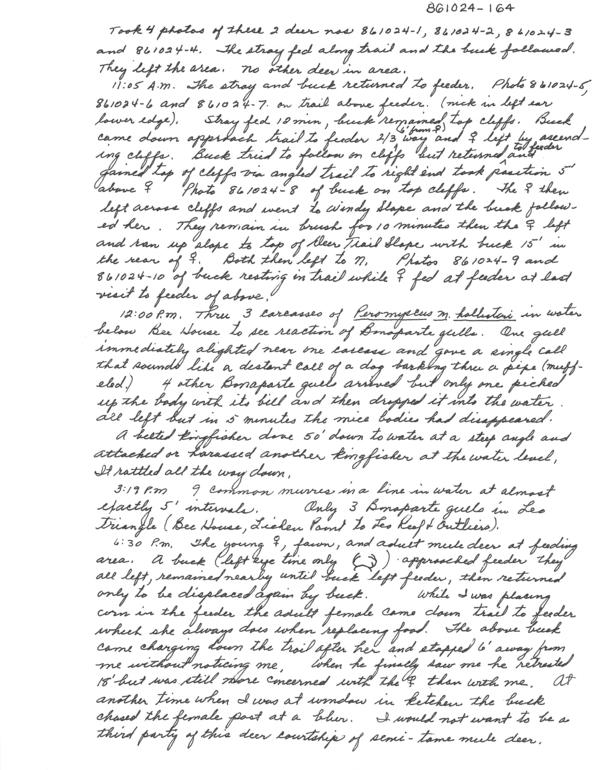 861024-164
Took 4 photos of these 2 deer nos 861024-1, 861024-2, 861024-3
and 861024-4. The stray fed along trail and the buck followed.
They left the area. No other deer in area.
11:05 A.M. The stray and buck returned to feeder. Photo 861024-5,
861024-6 and 861024-7 on trail above feeder. (nick in left ear
lower edge). Stray fed 10 min, buck remained top cliffs. Buck
(6' from ♀)
came down approach trail to feeder 2/3 way and ♀ left by ascend-
to feeder
ing cliffs. Buck tried to follow on cliffs but returned and
gained top of cliffs via angled trail to right end took position 5'
above ♀ Photo 861024-8 of buck on top cliffs. The ♀ then
left across cliffs and went to Windy Slope and the buck follow-
ed her. They remain in brush for 10 minutes then the ♀ left
and ran up slope to top of Deer Trail Slope with buck 15' in
the rear of ♀. Both then left to N. Photos 861024-9 and
861024-10 of buck resting in trail while ♀ fed at feeder at last
visit to feeder of above.
12:00 P.M. Threw 3 carcasses of Peromyscus m. hollisteri in water
below Bee House to see reaction of Bonaparte gulls. One gull
immediately alighted near one carcass and gave a single call
that sounds like a distant call of a dog barking thru a pipe (muff-
eled) 4 other Bonaparte gulls arrived but only one picked
up the body with its bill and then dropped it into the water.
All left but in 5 minutes the mice bodies had disappeared.
A belted kingfisher dove 50' down to water at a steep angle and
attacked or harassed another kingfisher at the water level,
It rattled all the way down.
3:19 P.M 9 common murres in a line in water at almost
exactly 5' intervals. Only 3 Bonaparte gulls in Leo
triangle (Bee House, Lichen Point to Leo Reef & Outliers).
6:30 P.m. The young ♀, fawn, and adult mule deer at feeding
area. A buck (left eye tine only) approached feeder they
all left, remained nearby until buck left feeder, then returned
only to be displaced again by buck. While I was placing
corn in the feeder the adult female came down trail to feeder
which she always does when replacing food. The above buck
came charging down the trail after her and stopped 6' away from
me without noticing me. When he finally saw me he retreated
18' but was still more concerned with the ♀ than with me. At
another time when I was at window in ketchen the buck
chased the female past at a blur. I would not want to be a
third party of this deer courtship of semi-tame mule deer.